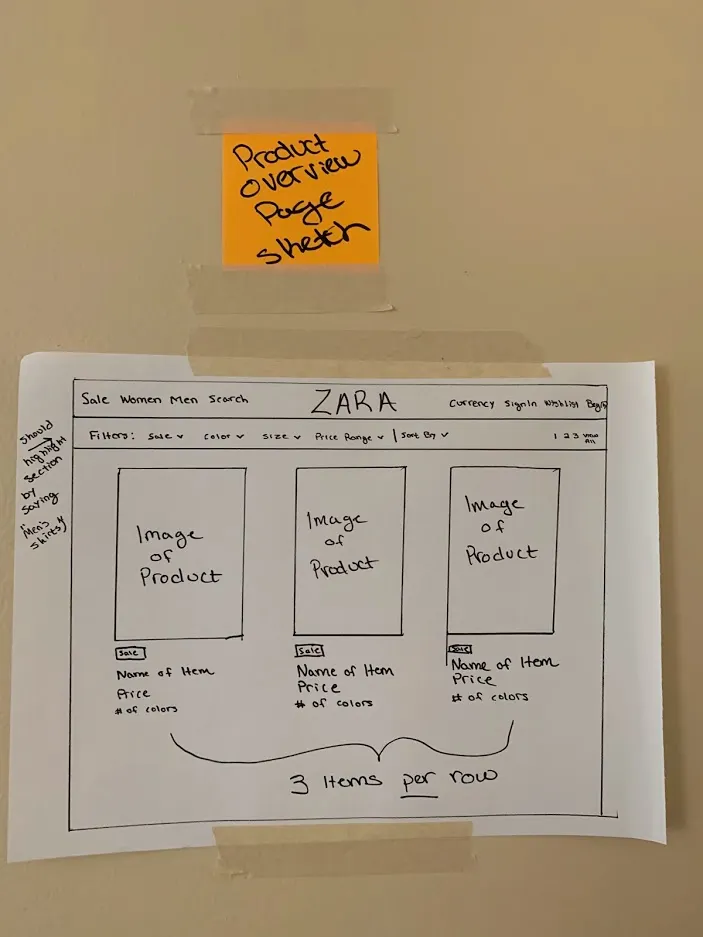 Product
overview
Page
sketch
Sale Women Men Search ZARA Currency SignIn Wishlist
Filters: Sale Color Size Price Range | Sort By 1 2 3 View
All
should
highlight
section
by
saying
"Men's
shirts"
Image
of
Product
Image
of
Product
Image
of
Product
Sale
Name of Item
Price
# of colors
Sale
Name of Item
Price
# of colors
Sale
Name of Item
Price
# of colors
3 Items per row